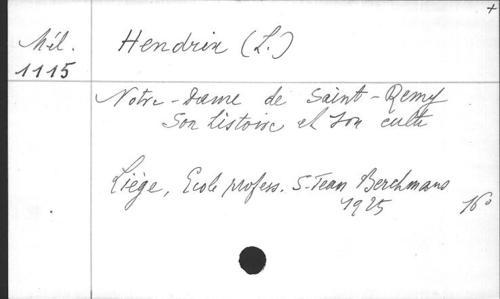 +
Mél. Hendrix (L.)
1115
Notre-Dame de Saint-Remy
Son histoire et son culte
Liège, Ecole profess. S-Jean Berchmans
1925 16°